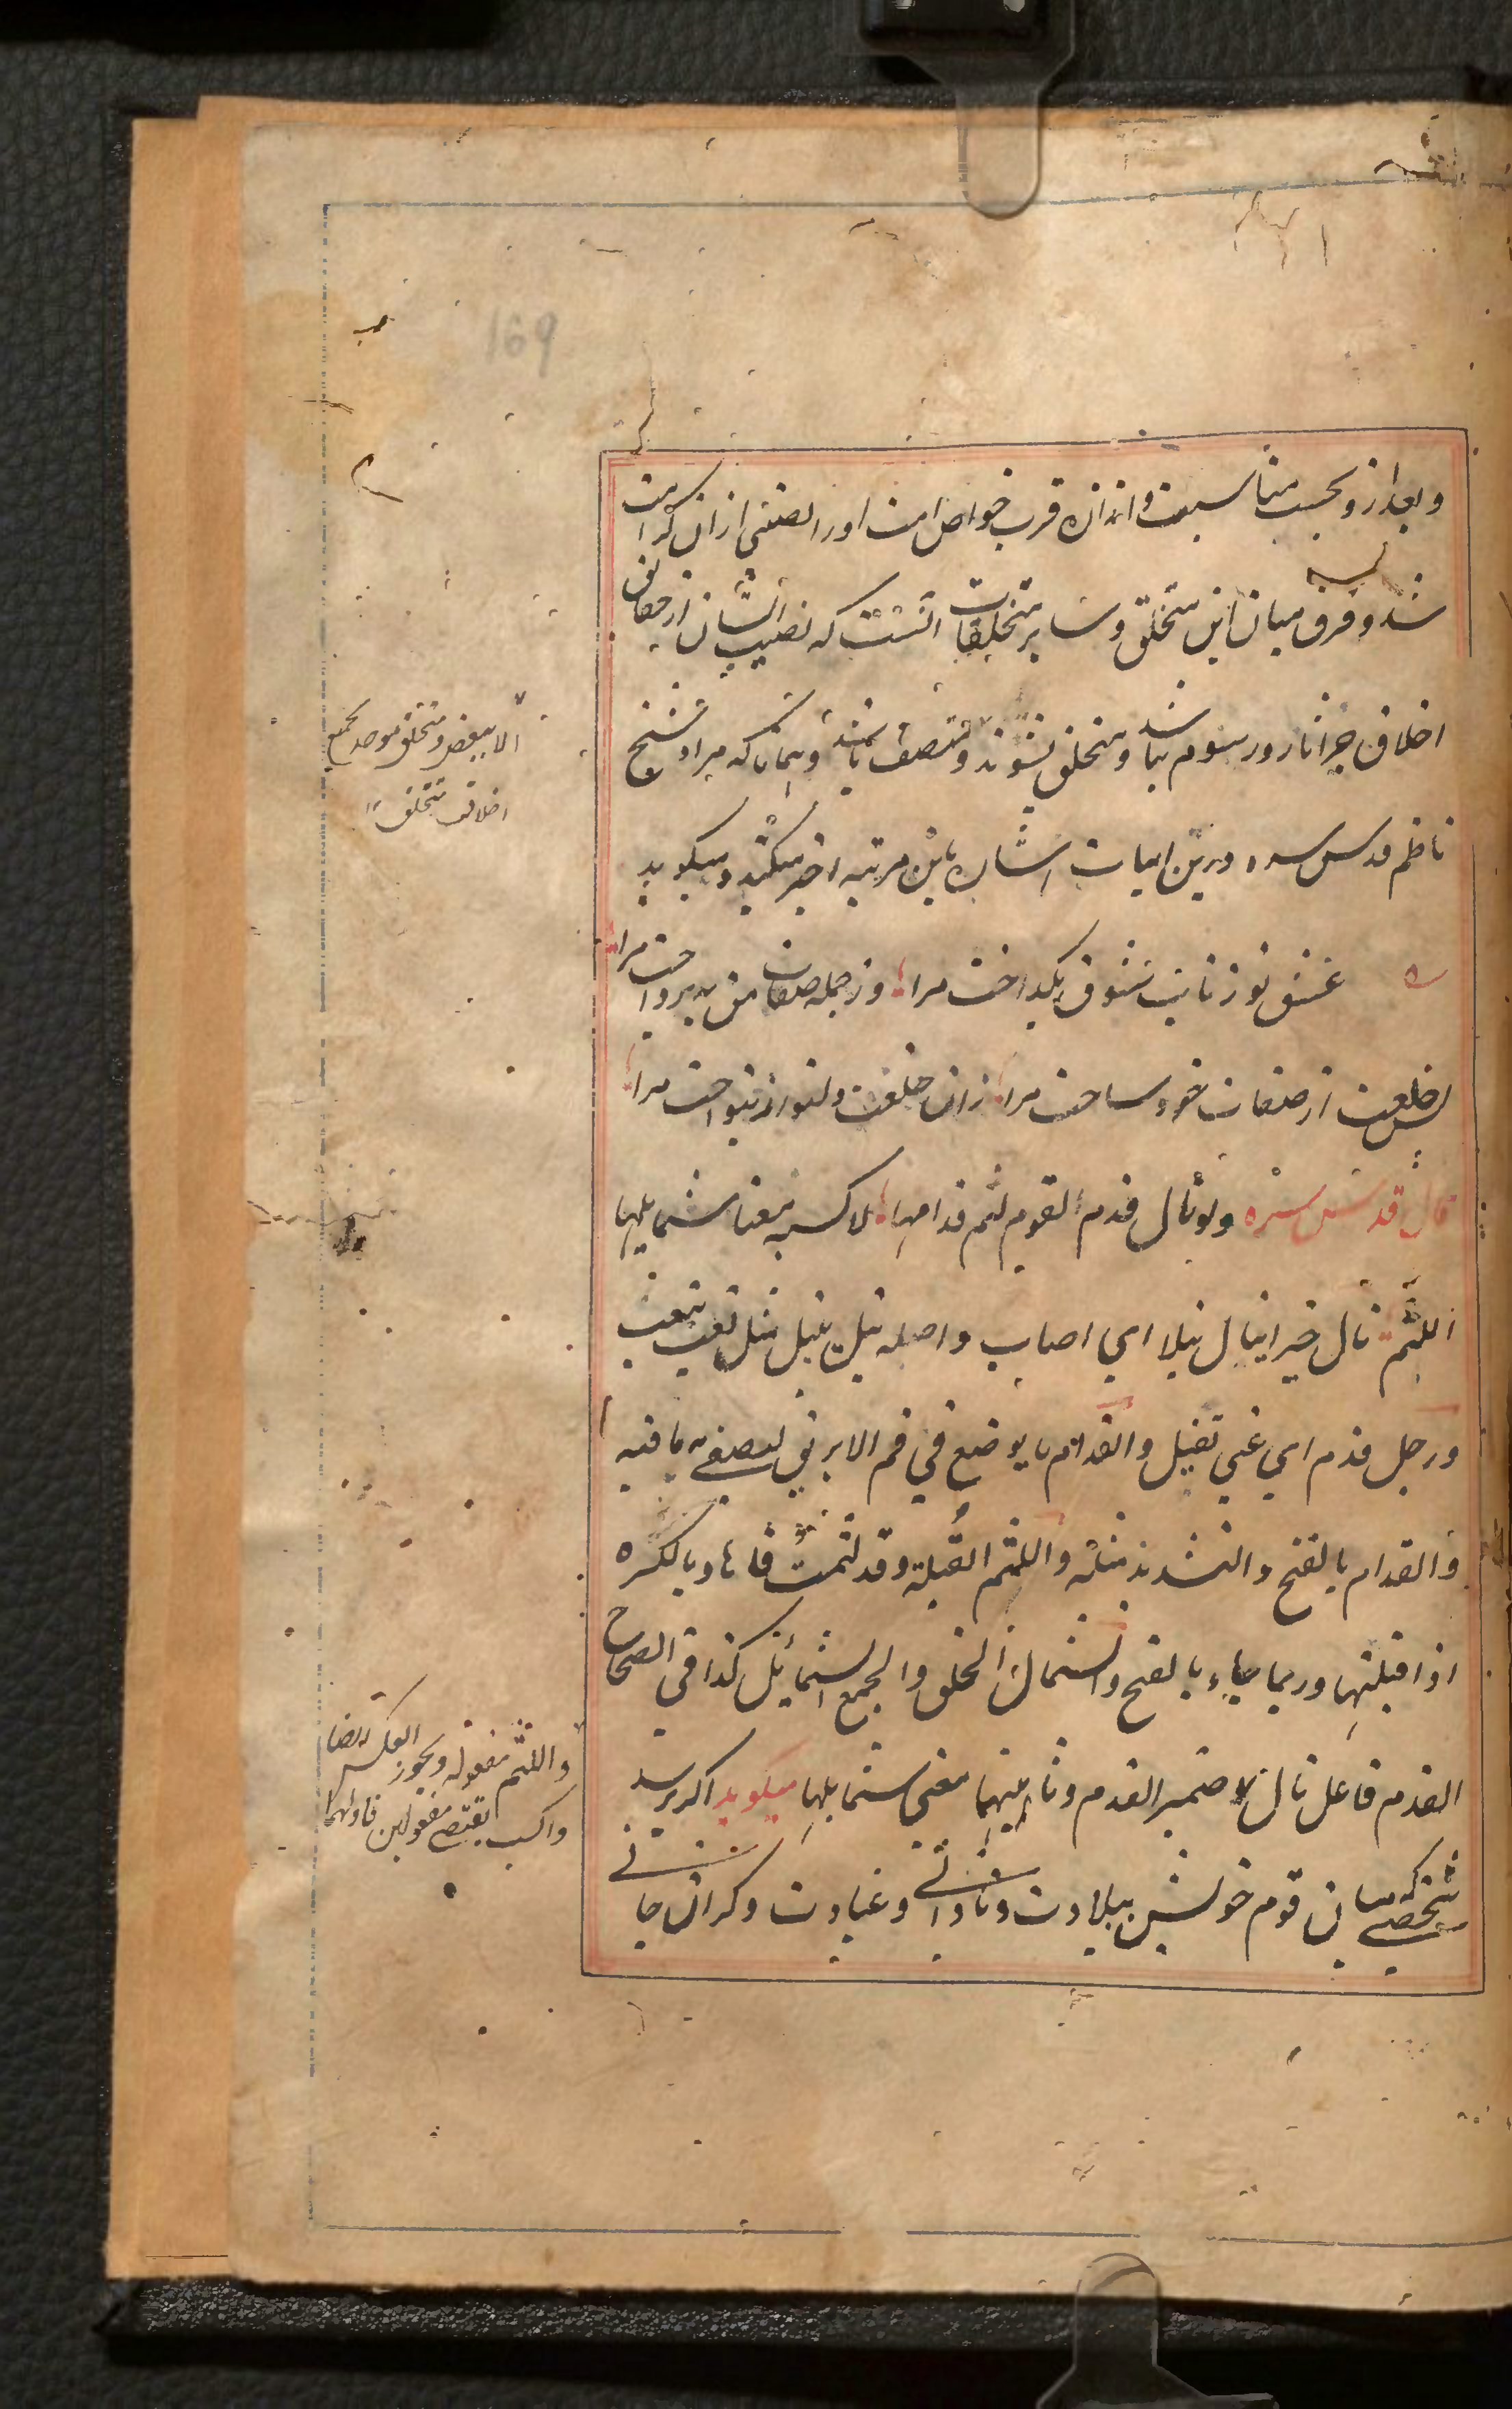 169
و بعد ازو بحسب مناسبت و اندازه قرب خواص امت او را نصیبی ازان کرامت
شد و فرق میان این متخلق و سایر متخلقات آنست که نصیب ایشان از حقایق
اخلاق جز آثار و رسوم نباشد و متخلق نشوند و متصف نباشند و همانا که مراد شیخ
ناظم قدس سره درین ابیات اشاره باین مرتبه اخیر میکند و میگوید
عشق تو ز نایب شوق بگداخت مرا وز جمله صفات من بپرداخت مرا
پس خلعت از صفات خود ساخت مرا زان خلعت دلنواز بنواخت مرا
قال قدس سره ولو نال فدم القوم لثم فدامها لاکسبه معنی شمایلها
اللثم نال خیرا ینال نیلا ای اصاب و اصله نیل ینیل مثل تعب یتعب
ورجل فدم ای غبی ثقیل والفدام ما یوضع فی فم الابریق لیصفی به ما فیه
والفدام بالفتح والتشدید مثله واللثم القبلة وقد لثمت فاها بالکسره
اذا قبلتها وربما جاء بالفتح والشمال الخلق والجمع الشمائل کذا فی الصحاح
الفدم فاعل نال ضمیر الفدم و ثانیهما معنی شمایلها میگوید اگر برسد
شخصی که میان قوم خویش ببلادت و نادانی و غباوت و گران جانی
الا ببعض و متخلق موحد بجمیع
اخلاق متخلق
واللثم مفعوله ویجوز العکس ایضا
واکسب یقتضی مفعولین فاولهما